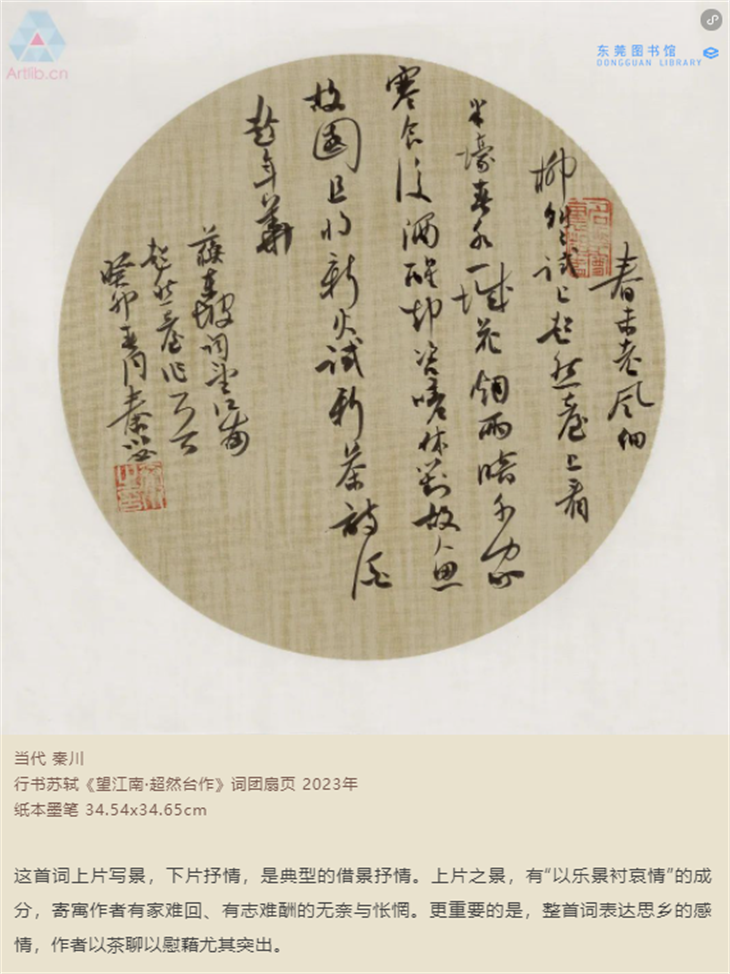 Artlib.cn
东莞图书馆
DONGGUAN LIBRARY
春未老風細
柳斜〻試上超然臺上看
半壕春水一城花烟雨暗千家
寒食後酒醒却咨嗟休對故人思
故園且将新火試新茶詩酒
趁年華
蘓東坡词望江南
超然臺作
癸卯
当代 秦川
行书苏轼《望江南·超然台作》词团扇页 2023年
纸本墨笔 34.54x34.65cm
这首词上片写景，下片抒情，是典型的借景抒情。上片之景，有“以乐景衬哀情”的成
分，寄寓作者有家难回、有志难酬的无奈与怅惘。更重要的是，整首词表达思乡的感
情，作者以茶聊以慰藉尤其突出。